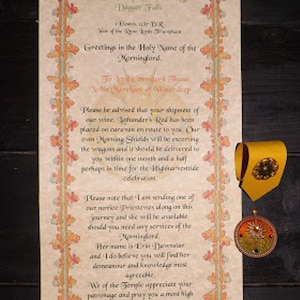 Dagger Falls
1 Eleasis, 1357 D.R.
Year of the Rune Lords Triumphant
Greetings in the Holy Name of the
Morninglord.
To Lord
Merchant of Waterdeep
Please be advised that your shipment of
our wine, Lathander's Red has been
placed on caravan en route to you. Our
own Morning Shields will be escorting
the wagons and it should be delivered to
you within one month and a half
perhaps in time for the Highharvestide
celebration.
Please note that I am sending one of
our novice Priestesses along on this
journey and she will be available
should you need any services of the
Morninglord.
Her name is Erin Dawnstar
and I do believe you will find her
demeanour and knowledge most
agreeable.
We of the Temple appreciate your
patronage and pray you a most high